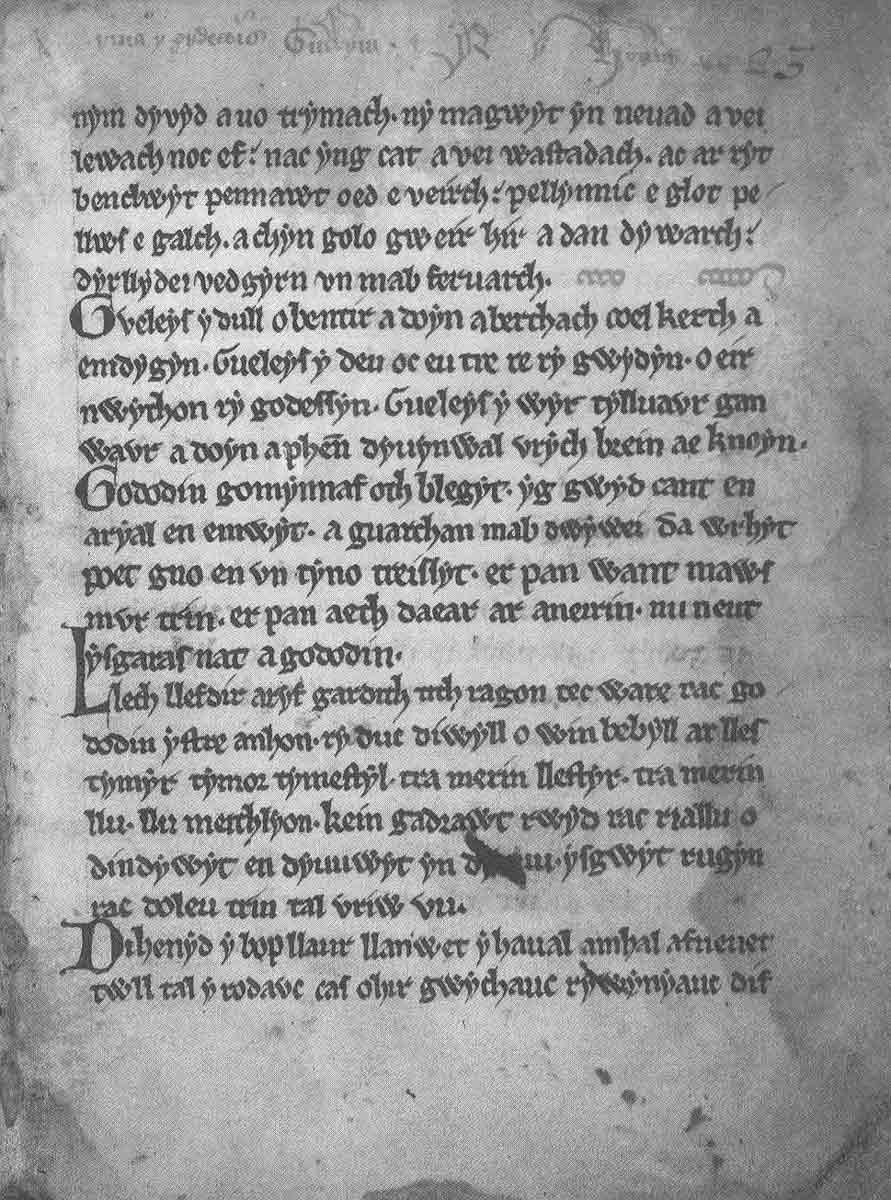 nẏm dẏvẏd a uo trẏmach. nẏ magwẏt ẏn neuad a vei
lewach noc ef. nac ẏng cat a vei wastadach. ac ar rẏt
benclwẏt pennawt oed e veirch. pellẏnnic e glot pe
llws e galch. a chẏn golo gweir hir a dan dẏwarch.
dẏrllẏdei vedgẏrn vn mab feruarch.
Gveleẏs ẏ dull o bentir a doẏn aberthach coel kerth a
emdẏgẏn. Gueleẏs ẏ deu oc eu tre re rẏ gwẏdẏn. o eir
nwẏthon rẏ godessẏn. Gueleẏs ẏ wẏr tẏlluavr gan
wavr a doẏn a phen̄ dẏuẏnwal vrẏch brein ae knoẏn.
Gododin gomẏnnaf oth blegẏt. ẏg gwẏd cant en
arẏal en emwẏt. a guarchan mab dwẏwei da wrhẏt
poet gno en vn tẏno treissẏt. er pan want maws
mvr trin. er pan aeth daear ar aneirin. nu neut
ẏsgaras nat a gododin.
Llech llefdir arẏf gardith tith ragon tec ware rac go
dodin ẏstre anhon. rẏ duc diwẏll o win bebẏll ar lles
tẏmẏr tẏmor tẏmestẏl. tra merin llestẏr. tra merin
llu. llu meithlẏon. kein gadrawt rwẏd rac riallu o
dindẏwẏt en dẏuuwẏt ẏn ẏsgwẏt rugẏn
rac doleu trin tal vriw vu.
Dihenẏd ẏ bop llaur llanwet ẏ haual amhal afneuet
twll tal ẏ rodavc cas ohir gwẏchauc rẏwẏnẏauc dif